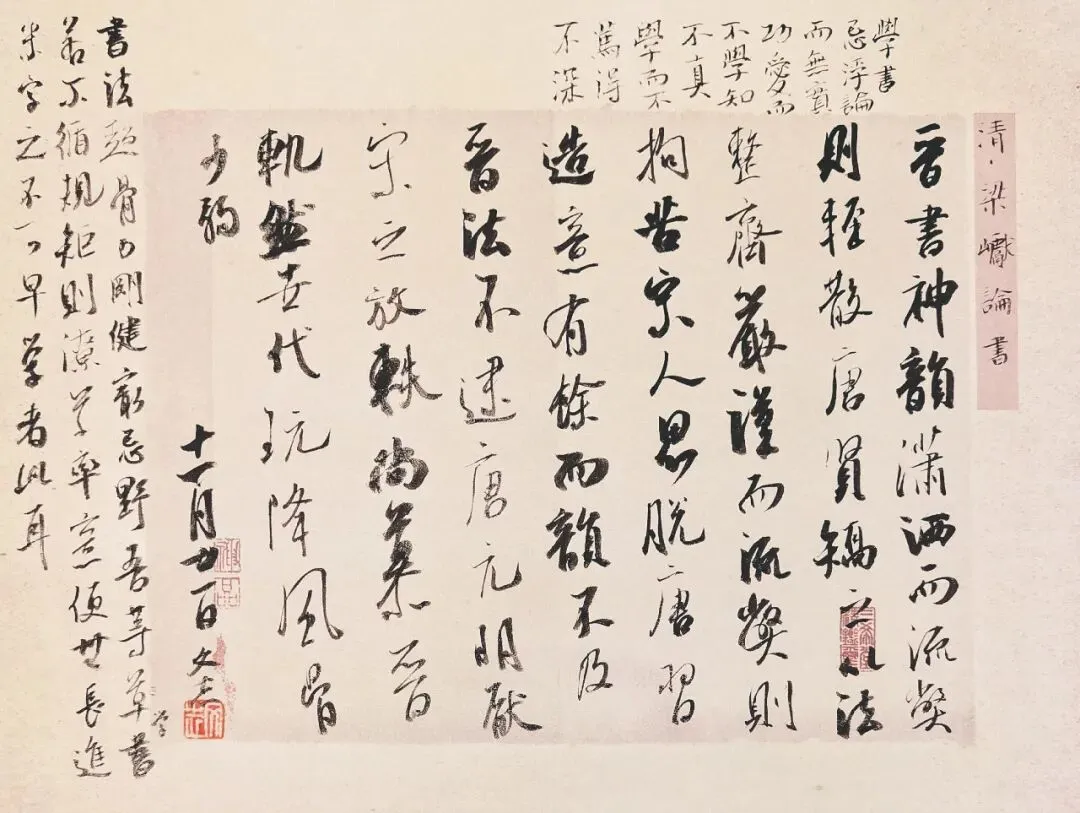 清、梁巘論書
學書
忌浮論
而無實
功愛而
不學知
不真
學而不
篤得
不深
晉書神韻瀟洒而流弊
則輕散唐賢矯之以法
整齊嚴謹而流弊則
拘苦宋人思脱唐習
造意有餘而韻不及
晉法不逮唐元明厭
宋之放軼尚慕晉
軌然世代玩降風骨
少弱
十一月廿一日
書法 骨力剛健最忌野吾等草書
學
若不循規矩則潦草率意便無長進
米字之不可早學者此耳